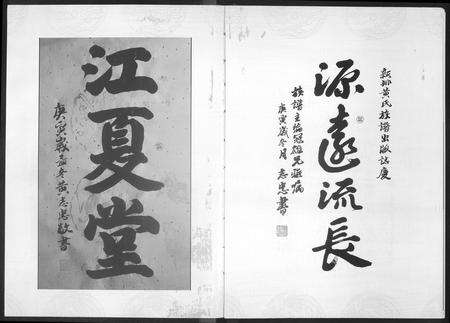 新鄉黃氏族譜出版誌慶
源遠流長
族譜主編冠雄兄雅屬
庚寅歲冬月 志忠書
江夏堂
庚寅歲孟冬黃志忠敬書